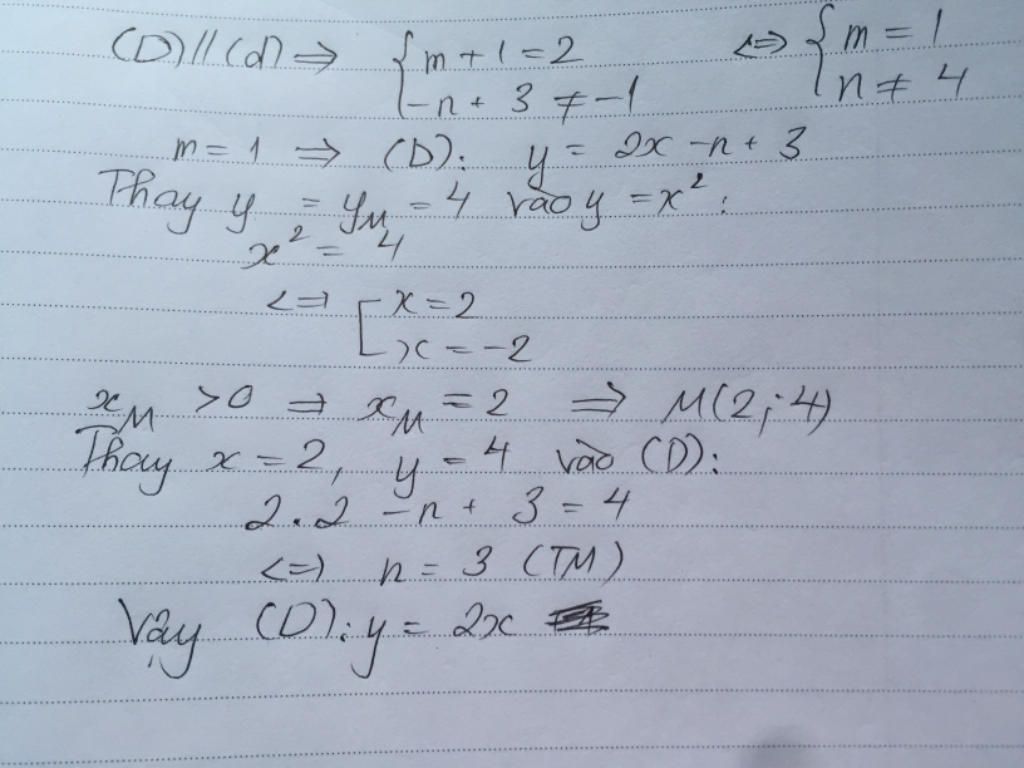 (D)//(d) ⇒ { m + 1 = 2 ⇔ { m = 1
-n + 3 ≠ -1 n ≠ 4
m = 1 ⇒ (D): y = 2x - n + 3
Thay y = yM = 4 vào y = x² :
x² = 4
⇔ [ x = 2
x = -2
xM > 0 ⇒ xM = 2 ⇒ M(2; 4)
Thay x = 2, y = 4 vào (D):
2.2 - n + 3 = 4
⇔ n = 3 (TM)
Vậy (D): y = 2x